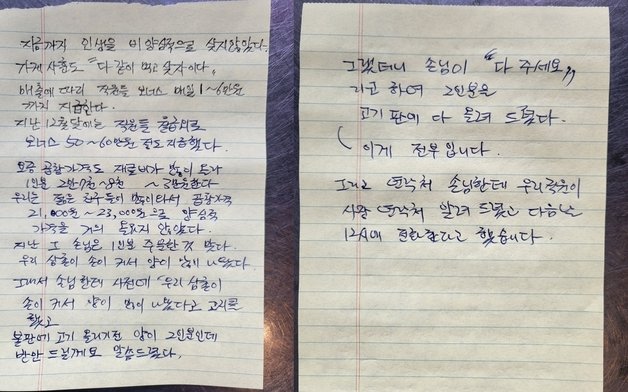 지금까지 인생을 비양심적으로 살지않았다.
가게 사훈도 "다 같이 먹고 살자이다"
매출에 따라 직원들 보너스 매일 1~6만원
까지 지급한다.
지난 12월달에는 직원들 월급외로
보너스 50~60만원 정도 지급했다.
요즘 곱창가격도 재료비가 많이 올라
1인분 2만7천~8천 ~ 3만원한다
우리는 젊은 친구들이 많이 와서 곱창가격
21,000원~23,000원으로 양심적
가격을 거의 올리지 안았다.
지난 그 손님은 1인분 주문한 것 맞다.
우리 삼촌이 손이 커서 양이 많이 나갔다.
그래서 손님한테 사전에 "우리 삼촌이
손이 커서 양이 많이 나갔다고 고지를
했고
불판에 고기 올리기전 양이 2인분인데
반만 드릴께요 말씀드렸다.
그랬더니 손님이 "다 주세요"
라고 하여 2인분을
고기판에 다 올려 드렸다.
이게 전부입니다.
그리고 연락처 손님한테 우리직원이
사장 연락처 알려 드렸고 다음날
12시에 전화한다고 했습니다.